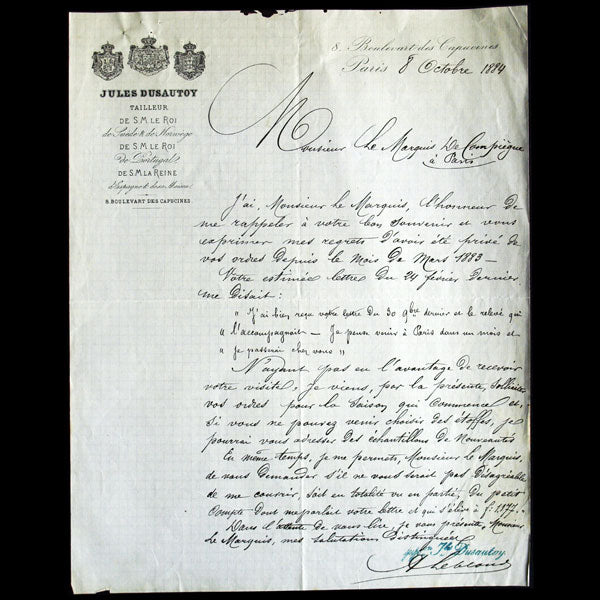 JULES DUSAUTOY
TAILLEUR
DE S.M. LE ROI
de Suède & de Norwège
DE S.M. LE ROI
de Portugal
DE S.M. LA REINE
d'Espagne & de sa Maison
8. BOULEVART DES CAPUCINES.
8. Boulevart des Capucines
Paris 8 Octobre 1884
Monsieur Le Marquis De Compiègne
à Paris
J'ai, Monsieur le Marquis, l'honneur de
me rappeler à votre bon souvenir et vous
exprimer mes regrets d'avoir été privé de
vos ordres depuis le mois de Mars 1883 —
Votre estimée lettre du 24 février dernier
me disait :
" J'ai bien reçu votre lettre du 30 9bre dernier et le relevé qui
" l'accompagnait — Je pense venir à Paris dans un mois et
" je passerai chez vous "
N'ayant pas eu l'avantage de recevoir
votre visite, je viens, par la présente, solliciter
vos ordres pour la saison qui commence et,
si vous ne pouvez venir choisir des étoffes, je
pourrai vous adresser des échantillons de Nouveautés
En même temps, je me permets, Monsieur le Marquis,
de vous demander s'il ne vous serait pas désagréable
de me couvrir, soit en totalité ou en partie, du petit
compte dont me parlait votre lettre et qui s'élève à f: 1877. -
Dans l'attente de vous lire, je vous présente, Monsieur
Le Marquis, mes salutations distinguées
Dusautoy
A Leblond